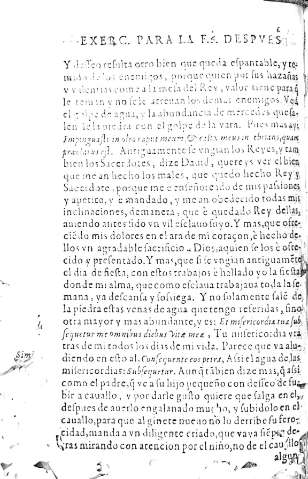 EXERC. PARA LA FÉ. DESPVES
Y desseo resulta otro bien que queda espantable, y te-
mido de los enemigos, porque quien por sus hazañas
y valentias come a la mesa del Rey, valor tiene para q̃
le teman y no se le atreuan los demas enemigos. Veis
el golpe de agua, y la abundancia de mercedes que sa-
len de la piedra con el golpe de la vara. Pues mas ay:
Impinguasti in oleo caput meum & calix meus inebrians, quam
præclarus est. Antiguamente se vngian los Reyes, y tam
bien los Sacerdotes, dize Dauid, quereys ver el bien
que me an hecho los males, que quedo hecho Rey y
Sacerdote, porque me è enseñoreado de mis passiones
y apetito, y è mandado, y me an obedecido todas mis
inclinaciones, de manera, que è quedado Rey dellas,
auiendo antes sido vn vil esclauo suyo. Y mas, que ofre-
ciẽdo mis dolores en el ara de mi coraçon, è hecho de-
llos vn agradable sacrificio a Dios, a quien se los è ofre-
cido y presentado. Y mas, que si se vngian antiguamẽte
el dia de fiesta, con estos trabajos è hallado yo la fiesta
donde mi alma, que como esclaua trabajaua toda la se-
mana, ya descansa y sossiega. Y no solamente salẽ de
la piedra estas venas de agua que tengo referidas, sino
otra mayor y mas abundante, y es: Et misericordia tua sub
sequetur me omnibus diebus vitæ meæ. Tu misericordia vẽ
tras de mi todos los dias de mi vida. Parece que va alu-
diendo en esto al. Consequente eos petra. Assi el agua de las
misericordias: Subsequetur. Aunq̃ tãbien dize mas, q̃ assi
como el padre, q̃ ve a su hijo pequeño con desseo de su-
bir a cauallo, y por darle gusto quiere que salga en el,
despues de auerlo engalanado mucho, y subidolo en el
cauallo, para que al ginete nueuo no lo derribe su fero-
cidad, manda a vn diligente criado, que vaya siẽpre de-
tras mirando con atencion por el niño, no de el cauallo
algun